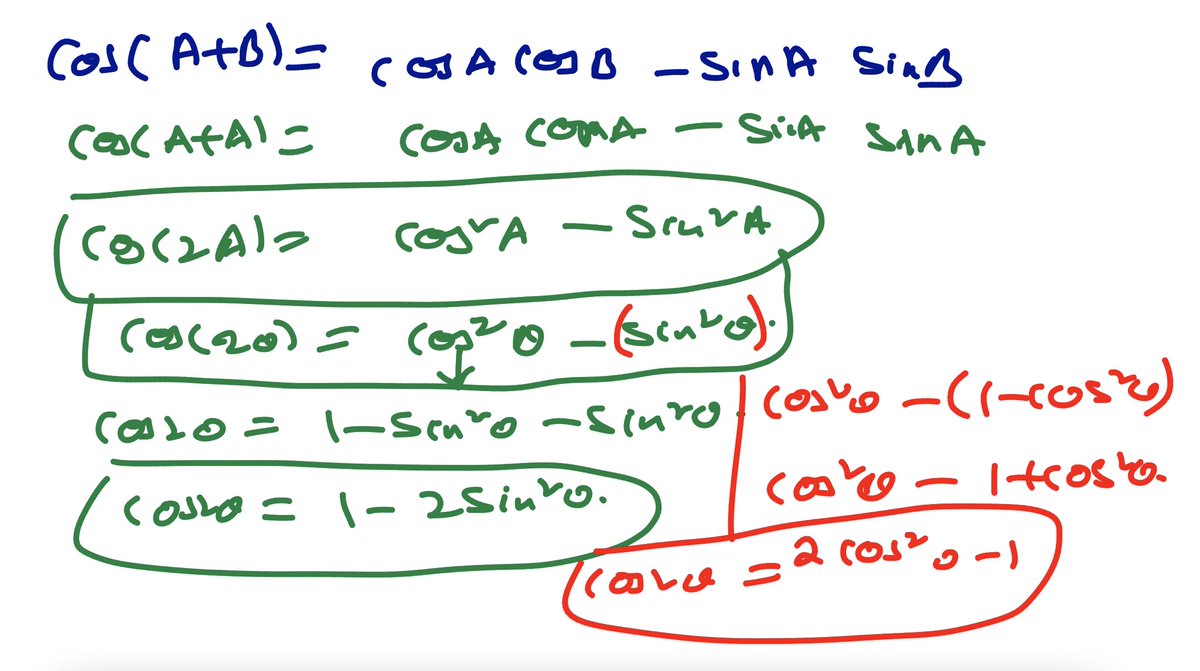 cos(A+B) = cosA cosB - sinA sinB
cos(A+A) = cosA cosA - sinA sinA
cos(2A) = cos²A - sin²A
cos(2θ) = cos²θ - (sin²θ).
cos2θ = 1 - sin²θ - sin²θ
cos2θ = 1 - 2sin²θ.
cos²θ - (1 - cos²θ)
cos²θ - 1 + cos²θ.
cos2θ = 2cos²θ - 1